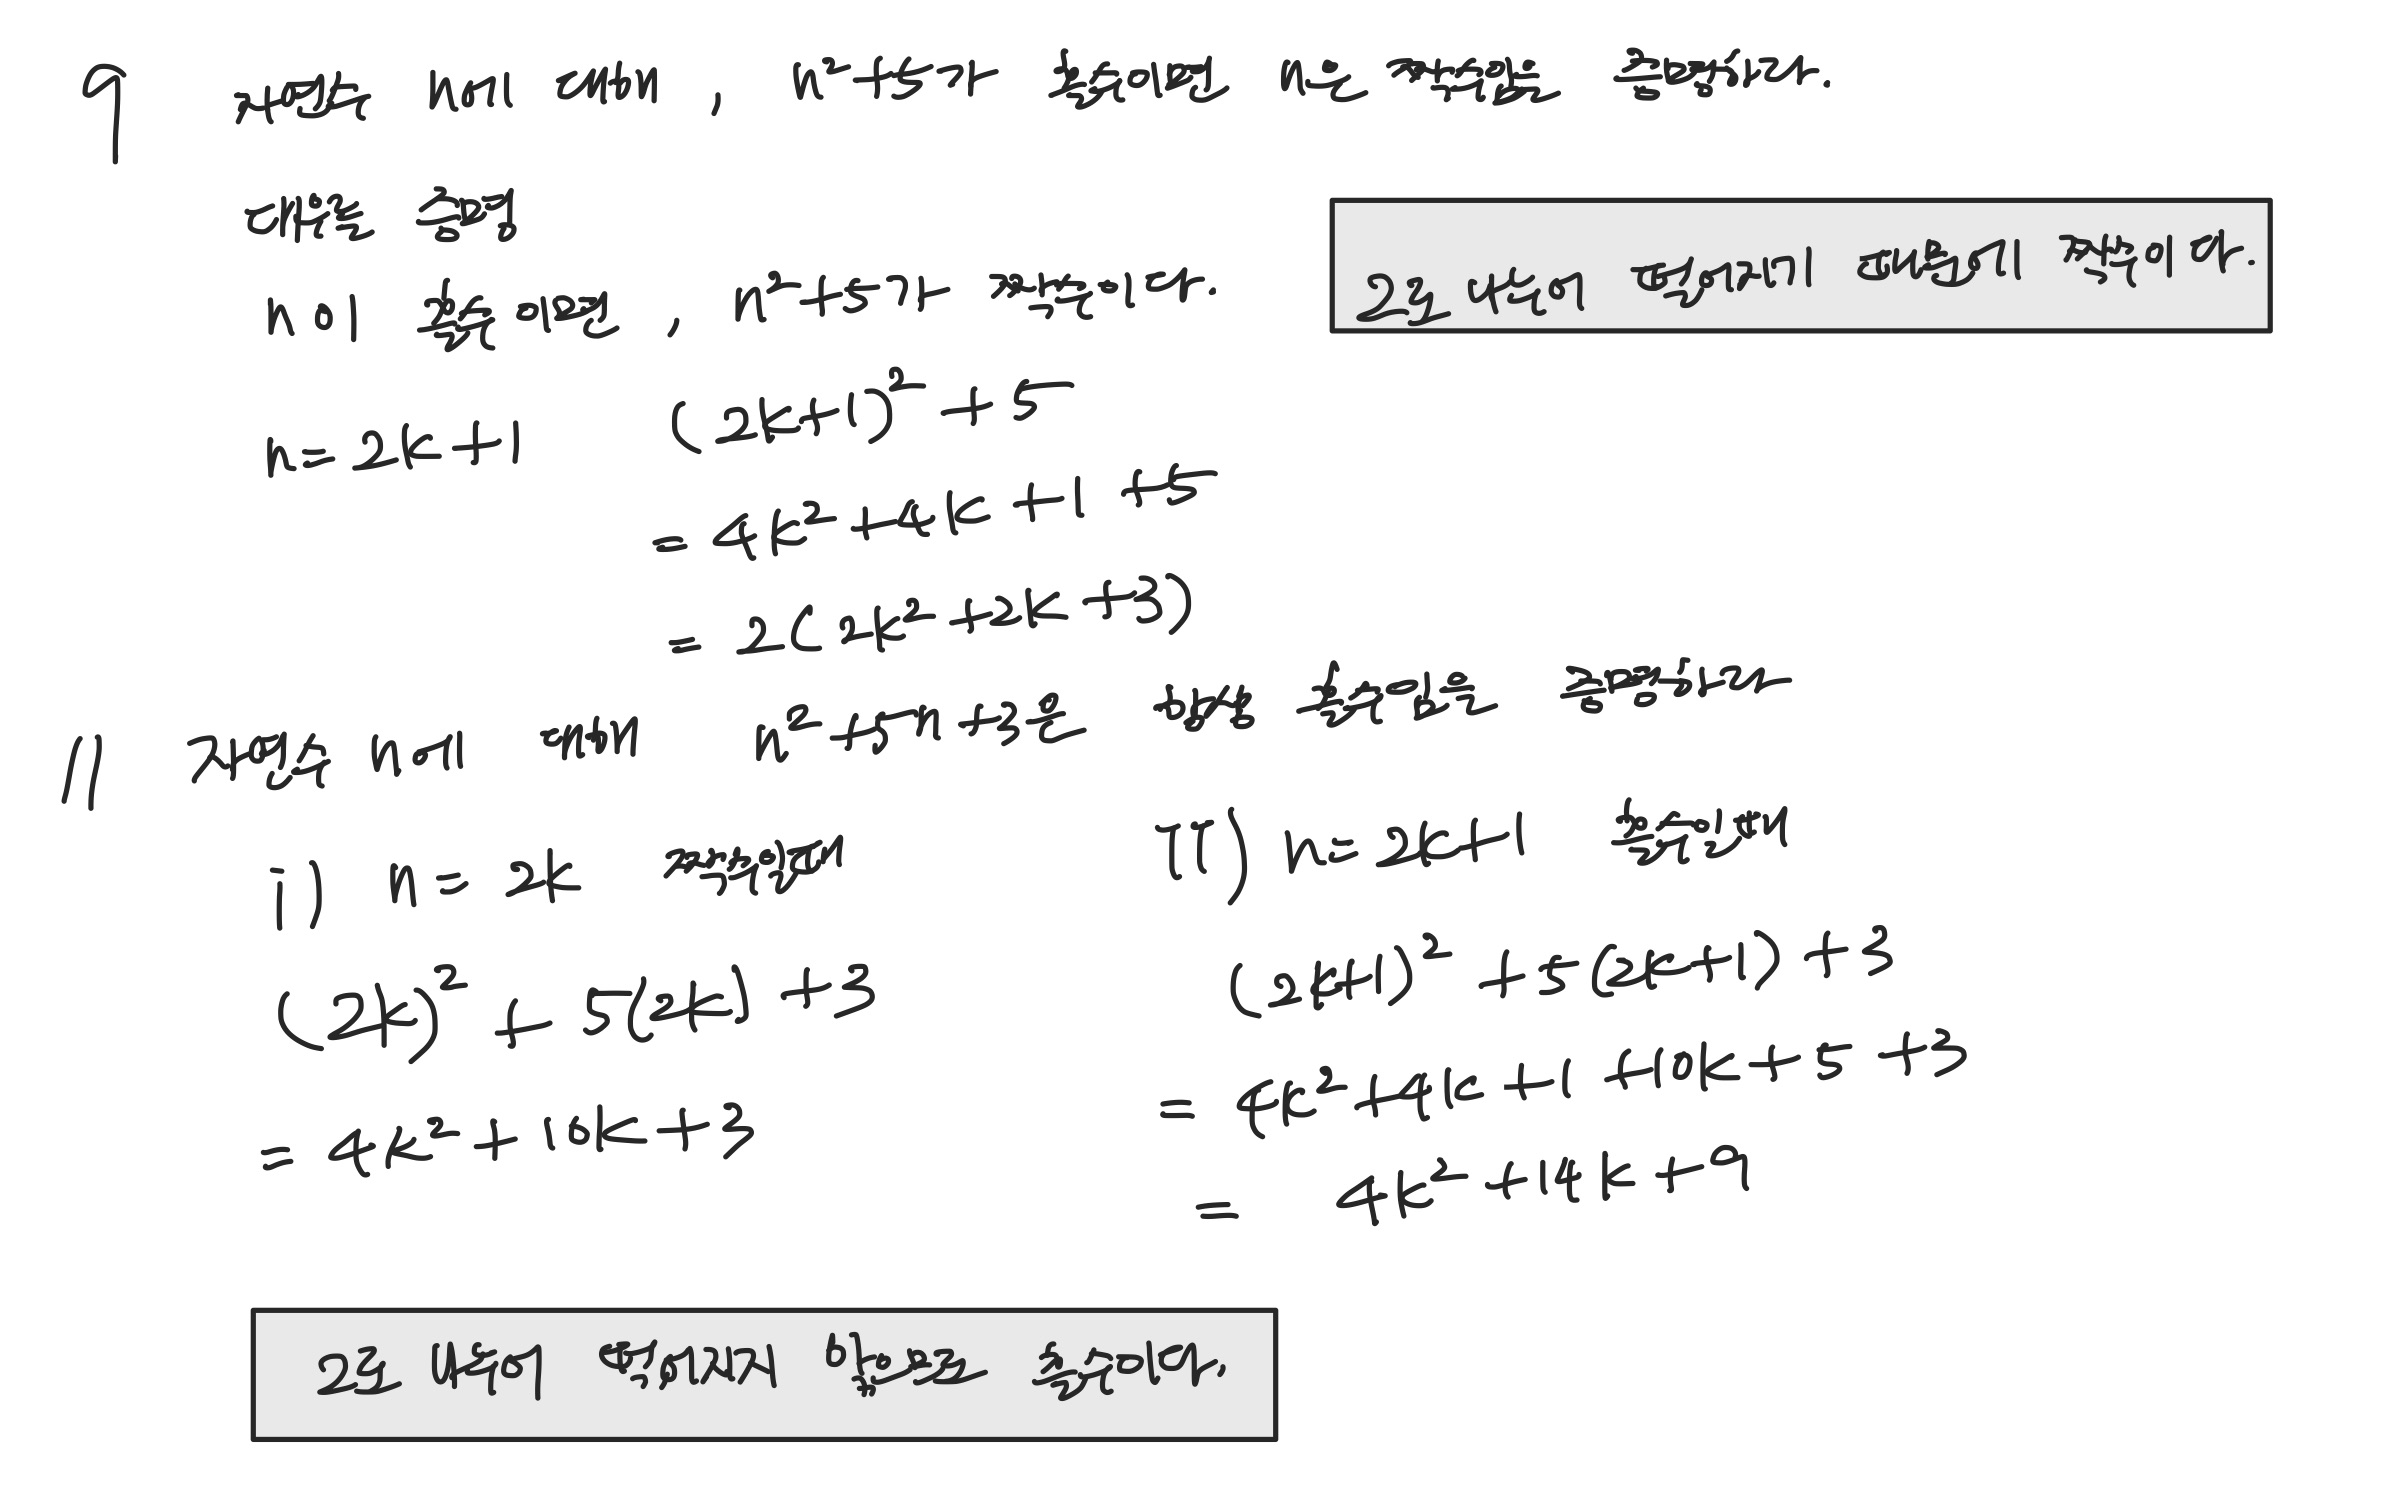 9 자연수 n에 대해, n²+5가 홀수이면 n은 짝수임을 증명하라.
대우를 증명
n이 홀수이면, n²+5가 짝수이다.
2로 나누어 떨어지기 때문에 짝수이다.
n=2k+1 (2k+1)²+5
=4k²+4k+1+5
=2(2k²+2k+3)
11 자연수 n에 대해 n²+5n+3은 항상 홀수임을 증명하라
i) n=2k 짝수일때
(2k)²+5(2k)+3
=4k²+10k+3
ii) n=2k+1 홀수일때
(2k+1)²+5(2k+1)+3
=4k²+4k+1+10k+5+3
= 4k²+14k+9
2로 나누어 떨어지지 않으므로 홀수이다.